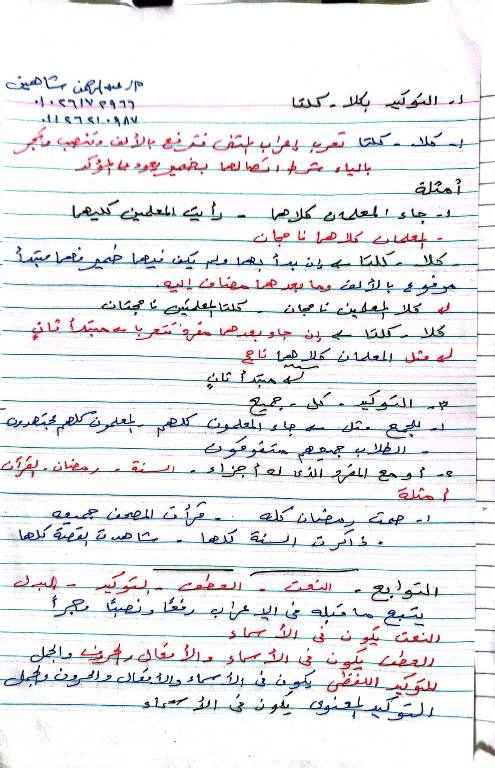 م/ عبدالرحمن شاهين
٠١٠٢٦١٧٢٩٦٦
٠١١٢٦٢١٠٩٨٧
١- التوكيد بكلا - كلتا
١- كلا - كلتا تعرب إعراب المثنى فترفع بالألف وتنصب وتجر
بالياء بشرط اتصالها بضمير يعود على المؤكد
أمثلة
١- جاء المعلمان كلاهما - رأيت المعلمين كليهما
- المعلمان كلاهما ناجحان
- كلا - كلتا ← إن بدأ بهما ولم يكن فيهما ضمير فهما مبتدأ
مرفوع بالألف وما بعدهما مضاف إليه.
كلا المعلمين ناجحان - كلتا المعلمتين ناجحتان
كلا - كلتا ← إن جاء بعدهما مفرد تعربا ← مبتدأ ثانٍ
مثل المعلمان كلاهما ناجح
مبتدأ ثانٍ
٣- التوكيد - كل - جميع
١- للجمع مثل ← جاء المعلمون كلهم - المعلمون كلهم مجتهدون
- الطلاب جميعهم متفوقون
٢- أو مع المفرد الذي له أجزاء - السنة - رمضان - القرآن
أمثلة
١- صمت رمضان كله - قرأت المصحف جميعه
- ذاكرت السنة كلها - شاهدت القصة كلها
التوابع - النعت - العطف - التوكيد - البدل
يتبع ما قبله في الإعراب رفعًا ونصبًا وجرًا
النعت يكون في الأسماء
العطف يكون في الأسماء والأفعال والحروف والجمل
التوكيد اللفظي يكون في الأسماء والأفعال والحروف والجمل
التوكيد المعنوي يكون في الأسماء